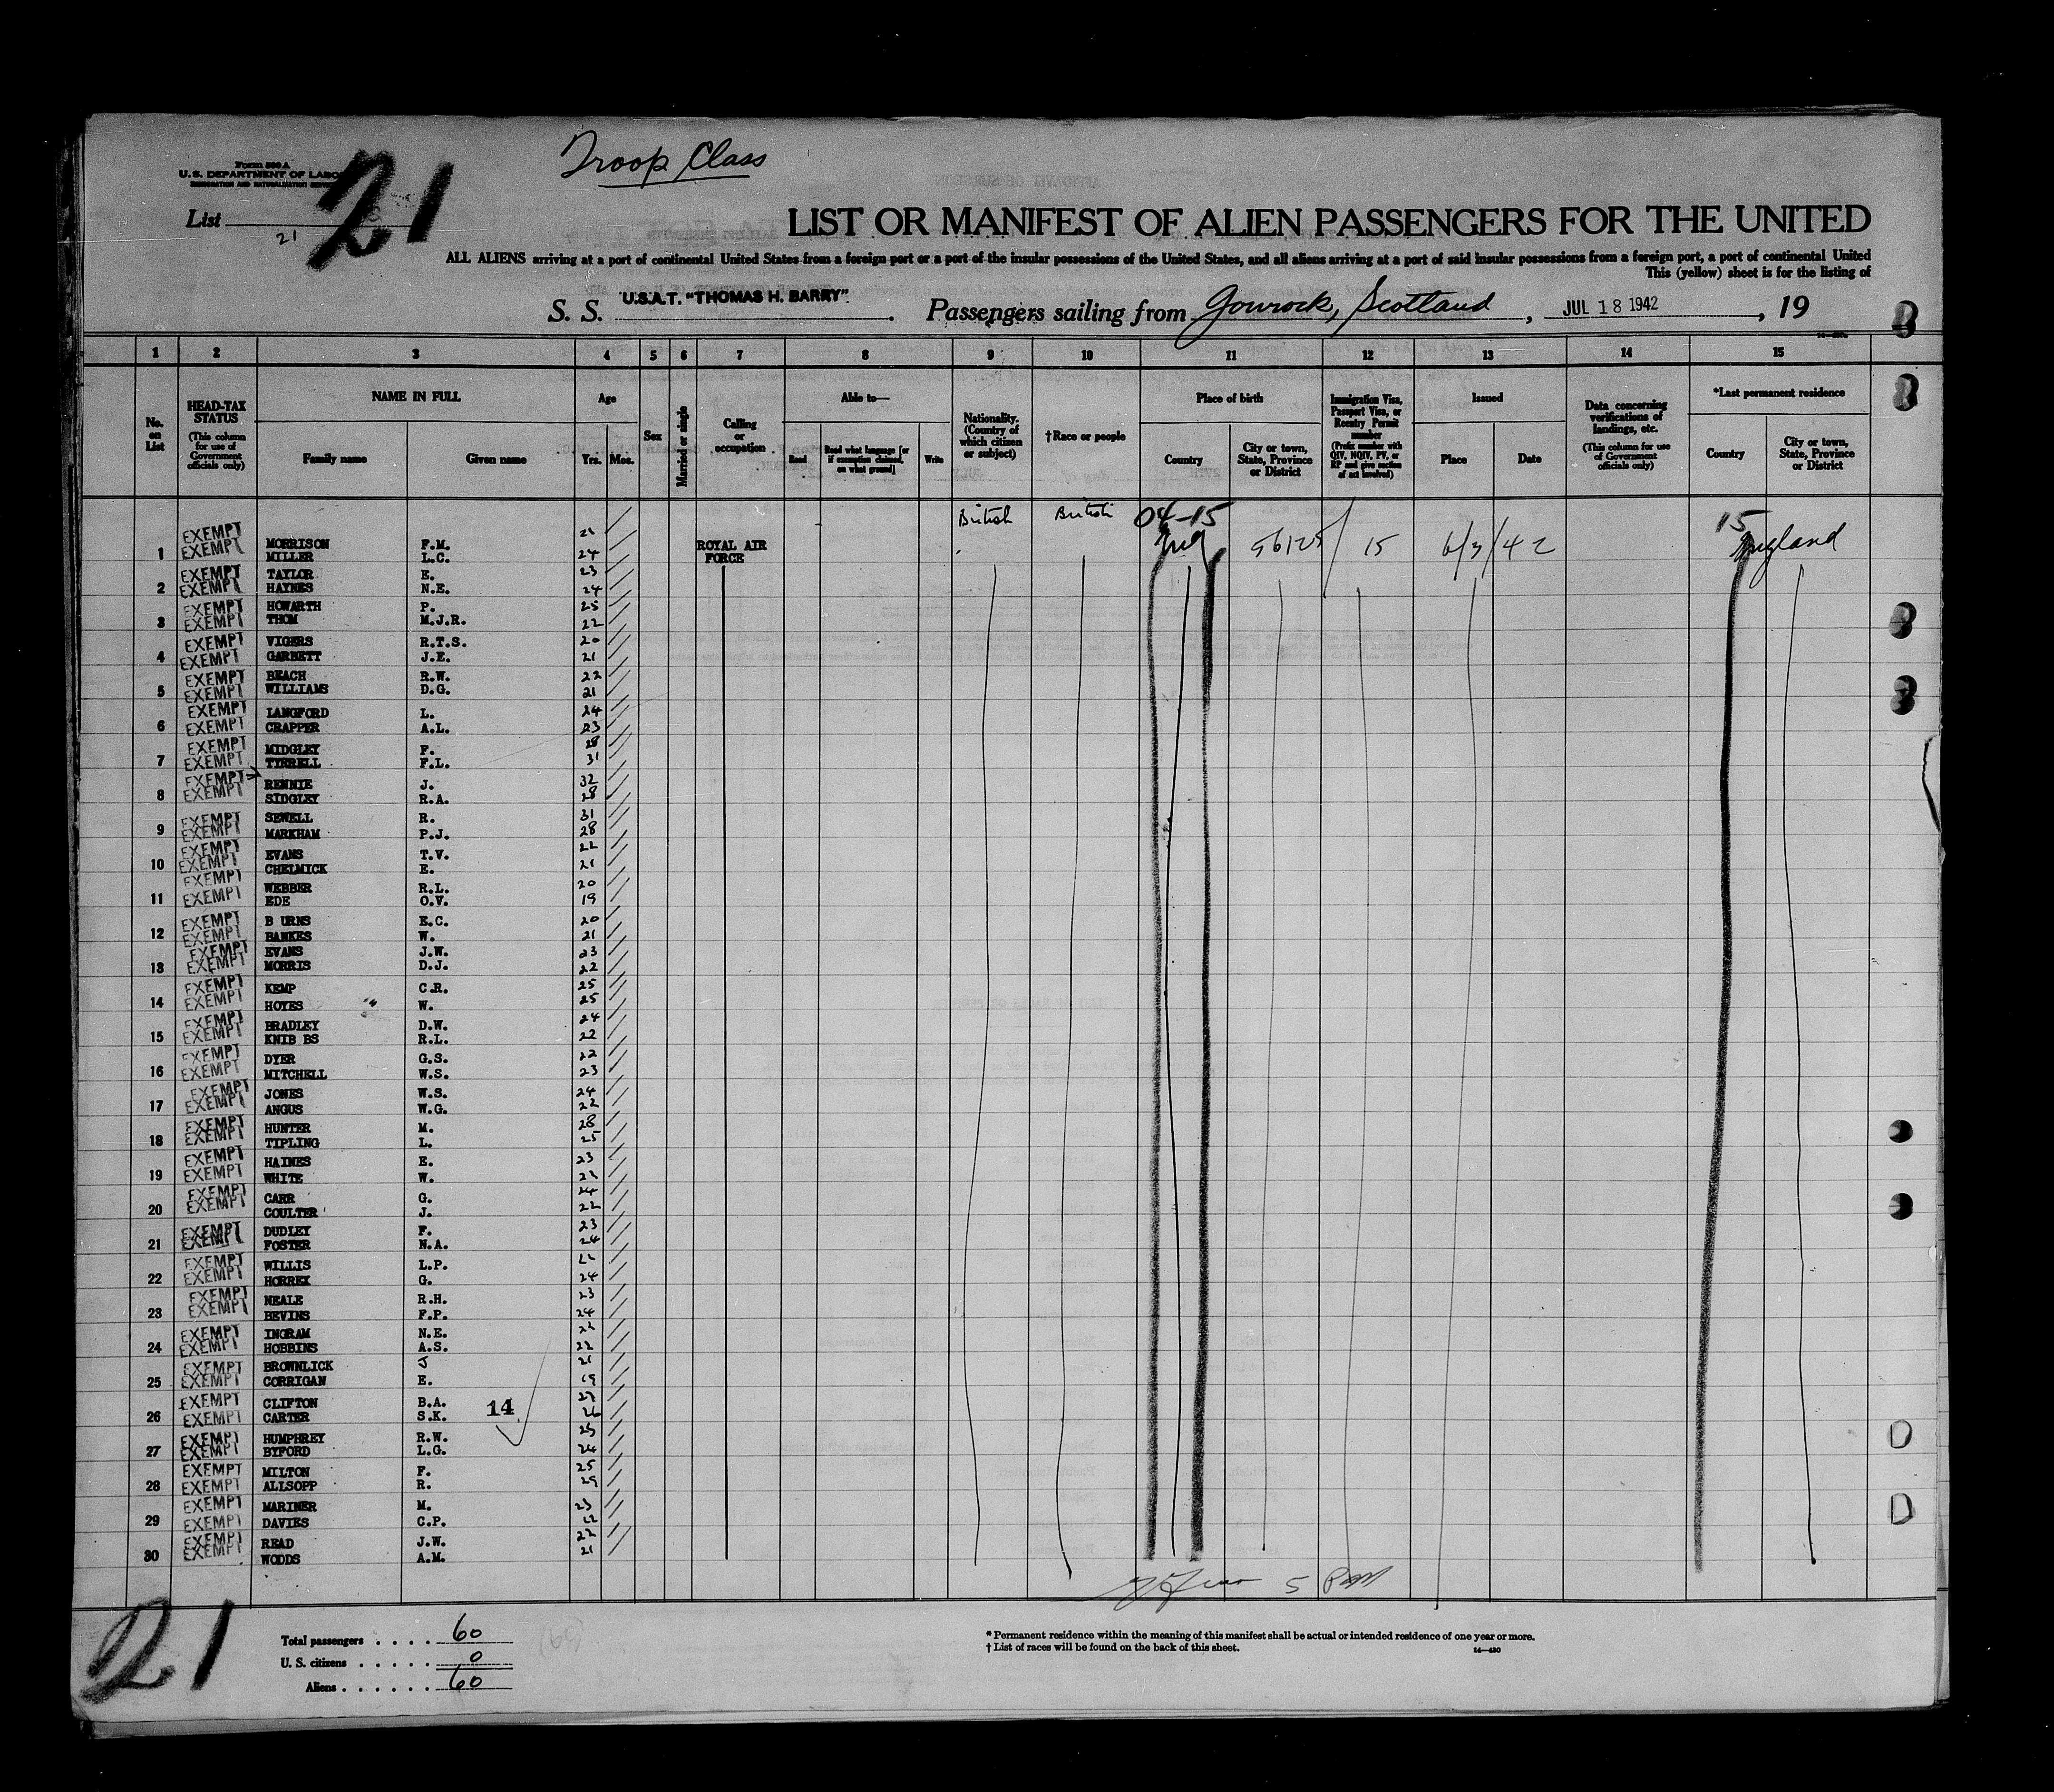 Troop Class
Form 500 A
U. S. DEPARTMENT OF LABOR
IMMIGRATION AND NATURALIZATION SERVICE
List 21
21
LIST OR MANIFEST OF ALIEN PASSENGERS FOR THE UNITED
ALL ALIENS arriving at a port of continental United States from a foreign port or a port of the insular possessions of the United States, and all aliens arriving at a port of said insular possessions from a foreign port, a port of continental United
This (yellow) sheet is for the listing of
S. S. U.S.A.T. "THOMAS H. BARRY". Passengers sailing from Gourock, Scotland, JUL 18 1942, 19
1 2 3 4 5 6 7 8 9 10 11 12 13 14 15
No. on List
HEAD-TAX STATUS (This column for use of Government officials only)
NAME IN FULL
Family name
Given name
Age
Yrs. Mos.
Sex
Married or single
Calling or occupation
Able to—
Read
Read what language [or if exemption claimed, on what ground]
Write
Nationality. (Country of which citizen or subject)
†Race or people
Place of birth
Country
City or town, State, Province or District
Immigration Visa, Passport Visa, or Reentry Permit number (Prefix number with QIV, NQIV, PV, or RP and give section of act involved)
Issued
Place
Date
Data concerning verifications of landings, etc. (This column for use of Government officials only)
*Last permanent residence
Country
City or town, State, Province or District
British British 04-15 15
EXEMPT MORRISON F.M. 21 ROYAL AIR Eng 56125 / 15 6/3/42 England
1 EXEMPT MILLER L.C. 24 FORCE
EXEMPT TAYLOR E. 23
2 EXEMPT HAYNES N.E. 24
EXEMPT HOWARTH P. 25
3 EXEMPT THOM M.J.R. 22
EXEMPT VIGERS R.T.S. 20
4 EXEMPT GARBETT J.E. 21
EXEMPT BEACH R.W. 22
5 EXEMPT WILLIAMS D.G. 21
EXEMPT LANGFORD L. 24
6 EXEMPT CRAPPER A.L. 23
EXEMPT MIDGLEY F. 28
7 EXEMPT TYRRELL F.L. 31
EXEMPT RENNIE J. 32
8 EXEMPT SIDGLEY R.A. 28
EXEMPT SEWELL R. 31
9 EXEMPT MARKHAM P.J. 28
EXEMPT EVANS T.V. 22
10 EXEMPT CHELMICK E. 21
EXEMPT WEBBER R.L. 20
11 EXEMPT EDE O.V. 19
EXEMPT B URNS E.C. 20
12 EXEMPT BANKES W. 21
EXEMPT EVANS J.W. 23
13 EXEMPT MORRIS D.J. 22
EXEMPT KEMP C.R. 25
14 EXEMPT HOYES W. 25
EXEMPT BRADLEY D.W. 24
15 EXEMPT KNIB BS R.L. 22
EXEMPT DYER G.S. 22
16 EXEMPT MITCHELL W.S. 23
EXEMPT JONES W.S. 24
17 EXEMPT ANGUS W.G. 22
EXEMPT HUNTER M. 28
18 EXEMPT TIPLING L. 25
EXEMPT HAINES E. 23
19 EXEMPT WHITE W. 21
EXEMPT CARR G. 24
20 EXEMPT COULTER J. 22
EXEMPT DUDLEY F. 23
21 EXEMPT FOSTER N.A. 24
EXEMPT WILLIS L.P. 22
22 EXEMPT HORREX G. 24
EXEMPT NEALE R.H. 23
23 EXEMPT BEVINS F.P. 24
EXEMPT INGRAM N.E. 22
24 EXEMPT HOBBINS A.S. 22
EXEMPT BROWNLICK J 21
25 EXEMPT CORRIGAN E. 19
EXEMPT CLIFTON B.A. 27
26 EXEMPT CARTER S.K. 14 26
EXEMPT HUMPHREY R.W. 25
27 EXEMPT BYFORD L.G. 24
EXEMPT MILTON F. 25
28 EXEMPT ALLSOPP R. 29
EXEMPT MARINER M. 23
29 EXEMPT DAVIES C.P. 22
EXEMPT READ J.W. 22
30 EXEMPT WOODS A.M. 21
21
Total passengers . . . . 60
U. S. citizens . . . . . 0
Aliens . . . . . . 60
* Permanent residence within the meaning of this manifest shall be actual or intended residence of one year or more.
† List of races will be found on the back of this sheet.
14—430